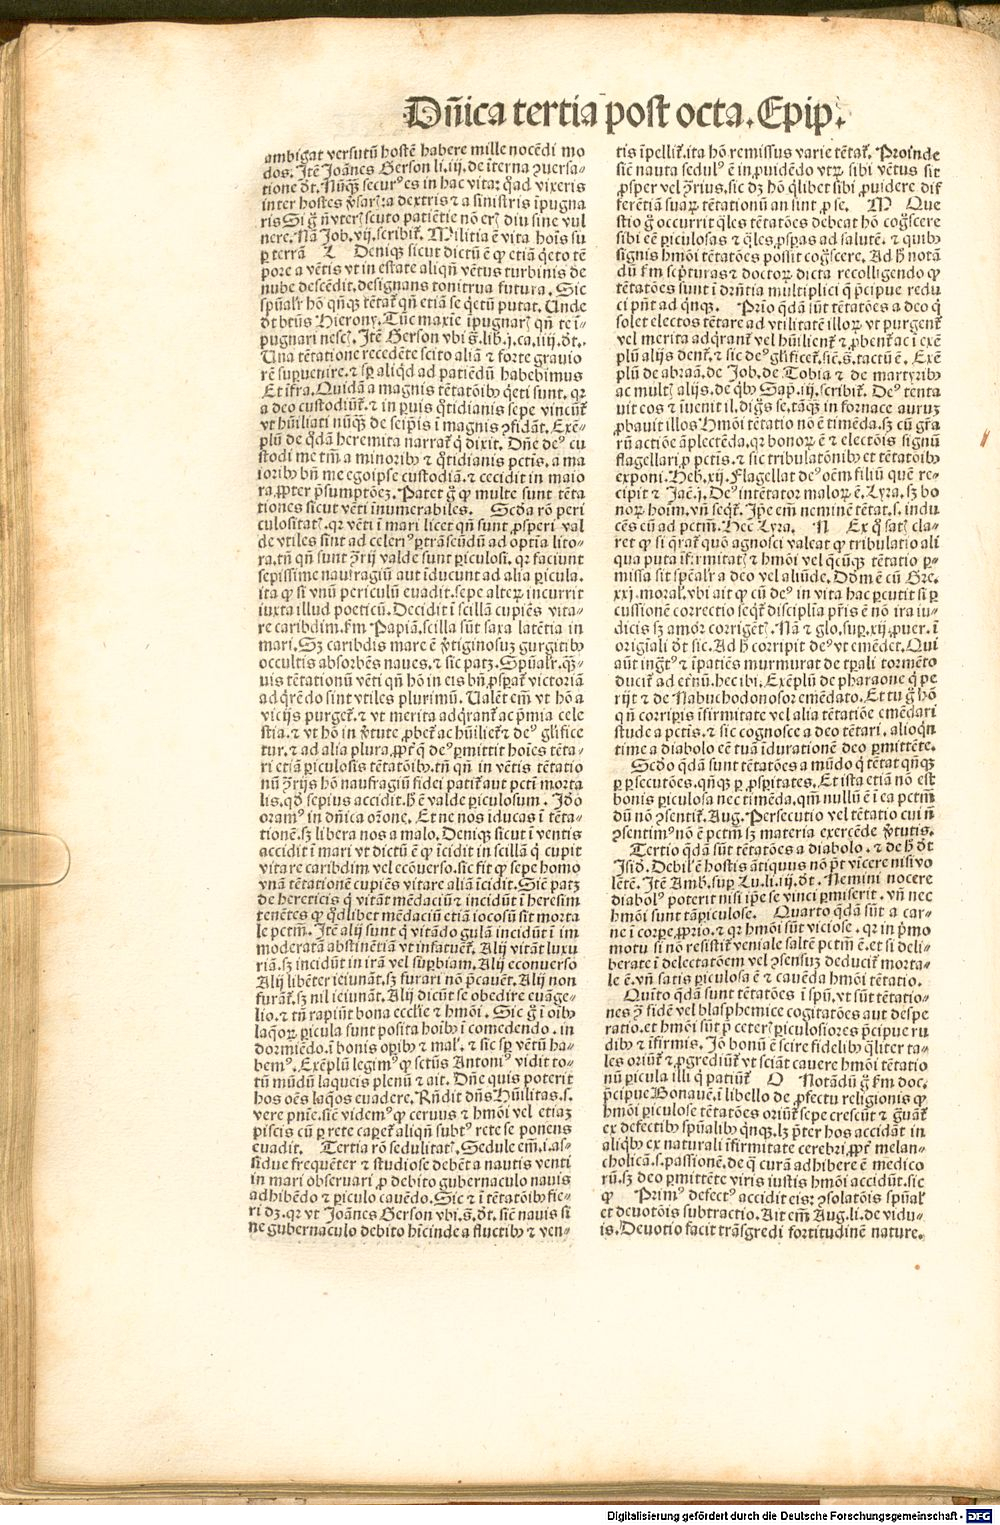 Dn̄ica tertia post octa. Epip.
ambigat versutū hostē habere mille nocēdi mo
dos. Itē Joānes Gerson li. iij. de īterna ꝯuersa-
tione dt̄. Nūqꝫ secur⁹ es in hac vita: qͣd vixeris
inter hostes
a dextris ⁊ a sinistris īpugna
ris Si
scuto patiētie nō
diu sine vul
nere. Nā Job. vij. scribit̄. Militia ē vita hoīs su
ꝑ terrā L Deniqꝫ sicut dictū ē ꝙ etiā qͥeto tē
pore a vētis vt in estate aliqn̄ vētus turbinis de
nube descēdit, designans tonitrua futura. Sic
spūalr̄ hō qn̄qꝫ tētat̄ qn̄ etiā se qͥetū putat. Unde
dt̄ btūs Hierony. Tūc maxīe īpugnaꝝ qn̄ te ī-
pugnari nescꝭ. Itē Gerson vbi s̄. lib. j. ca. iiij. dt̄.
Una tētatione recedēte scito aliā ⁊ forte grauio
rē superuenire. ⁊ sꝑ aliqͥd ad patiēdū habebimus
Et īfra. Quidā a magnis tētatōibꝰ qͥeti sunt. qꝛ
a deo custodiūt̄. ⁊ in ꝑuis qͦtidianis sepe vincūt̄
vt hūiliati nūqꝫ de seipīs ī magnis ꝯfidāt. Exē-
plū de qͦdā heremita narrat̄ qͥ dixit. Dn̄e de⁹ cu
stodi me tm̄ a minoribꝰ ⁊ qͦtidianis pctīs. a ma
ioribꝰ bn̄ me egoipse custodiā. ⁊ cecidit in maio
ra. ꝓpter p̄sumptōeꝫ. Patet gͦ ꝙ multe sunt tēta
tiones sicut vēti īnumerabiles. Scd̄a rō peri
culositatꝭ. qꝛ vēti ī mari licet qn̄ sunt ꝓsperi val
de vtiles sint ad celeriꝰ ꝑtrāseūdū ad optīa lito-
ra. tn̄ qn̄ sunt ꝯ̄rij valde sunt ꝑiculosi. qꝛ faciunt
sepissime naufragiū aut īducunt ad alia ꝑicula.
ita ꝙ si vnū periculū euadit. sepe alteꝝ incurrit
iuxta illud poeticū. Decidit ī scillā cupiēs vita-
re caribdim. Fm Papiā. scilla sūt saxa latētia in
mari. Sꝫ caribdis mare ē v̄tiginosuꝫ gurgitibꝰ
occultis absorbēs naues. ⁊ sic patꝫ. Spūalr̄. qͣꝫ-
uis tētationū vēti qn̄ hō in eis bn̄ ꝓsꝑat̄ victoriā
ad qͥrēdo sint vtiles plurimū. Ualēt em̄ vt hō a
vicijs purget̄. ⁊ vt merita adqͥrant̄ ac p̄mia cele
stia. ⁊ vt hō in v̄tute ꝓbet̄ ac hūiliet̄ ⁊ de⁹ glifice
tur. ⁊ ad alia plura. ꝓpt̄ qͣ de⁹ ꝑmittit hoīes tēta-
ri etiā ꝑiculosis tētatōibꝰ. tn̄ qn̄ in vētis tētatio
nū ꝯ̄rijs hō naufragiū fidei patit̄ aut pctī morta
lis. qd̄ sepius accidit. h̄ ē valde ꝑiculosum. Idō
oramꝰ in dn̄ica or̄one. Et ne nos īducas ī tēta-
tionē. sꝫ libera nos a malo. Deniqꝫ sicut ī ventis
accidit ī mari vt dictū ē ꝙ īcidit in scillā qͥ cupit
vitare caribdim vel ecōuerso. sic fit ꝙ sepe homo
vnā tētationē cupiēs vitare aliā īcidit. Sic̄ patꝫ
de hereticis qͥ vitāt mēdaciū ⁊ incidūt ī heresim
tenētes ꝙ qͦdlibet mēdaciū etiā iocosū sit morta
le pctm̄. Itē alij sunt qͥ vitādo gulā incidūt ī im
moderatā abstinētiā vt infatuēt̄. Alij vitāt luxu
riā. sꝫ incidūt in irā vel suꝑbiam. Alij econuerso
Alij libēter ieiunāt. sꝫ furari nō p̄cauēt. Alij non
furāt̄. sꝫ nil ieiunāt. Alij dicūt se obedire euāge-
lio. ⁊ tn̄ rapiūt bona eccl̄ie ⁊ hmōi. Sic gͦ ī oībꝰ
laqͦoꝝ ꝑicula sunt posita hoībꝰ ī comedendo. in
dormiēdo. ī bonis oꝑibꝰ ⁊ malꝭ. ⁊ sic sꝑ vētū ha-
bem⁹. Exēplū legim⁹ ꝙ sctūs Antoni⁹ vidit to-
tū mūdū laqueis plenū ⁊ ait. Dn̄e quis poterit
hos oēs laqͦos euadere. Rn̄dit dn̄s Hūilitas. s.
vere pnīe. sic̄ videm⁹ ꝙ ceruus ⁊ hmōi vel etiaꝫ
piscis cū ꝑ rete capet̄ aliqn̄ subt⁹ rete se ponens
euadit. Tertia rō sedulitatꝭ. Sedule em̄. i. as-
sidue frequēter ⁊ studiose debēt a nautis venti
in mari obseruari ꝓ debito gubernaculo nauis
adhibēdo ⁊ ꝑiculo cauēdo. Sic ⁊ ī tētatōibꝰ fie-
ri dꝫ. qꝛ vt Joānes Gerson vbi. s̄. dt̄. sic̄ nauis si
ne gubernaculo debito hīcinde a fluctibꝰ ⁊ ven-
tis īpellit̄. ita hō remissus varie tētat̄. Proinde
sic̄ nauta sedul⁹ ē in ꝓuidēdo vtꝝ sibi vētus sit
ꝓsper vel ꝯ̄rius. sic dꝫ hō qͥlibet sibi ꝓuidere dif
ferētiā suaꝝ tētationū an sint ꝓ se. M Que
stio gͦ occurrit qͣles tētatōes debeat hō cogͦscere
sibi eē ꝑiculosas ⁊ qͣles ꝓspas ad salutē. ⁊ quibꝰ
signis hmōi tētatōes possit cogͦscere. Ad h̄ notā
dū fm sc̄pturas ⁊ doctoꝝ dicta recolligendo ꝙ
tētatōes sunt ī dr̄ntia multiplici qͣ p̄cipue redu
ci pn̄t ad qͥnqꝫ. Prīo qͥdā sūt tētatōes a deo qͥ
solet electos tētare ad vtilitatē illoꝝ vt purgent̄
vel merita adqͥrant̄ vel hūilient̄ ⁊ ꝓbent̄ ac ī exē
plū alijs dent̄. ⁊ sic de⁹ glificet̄. sic̄. s̄. tactū ē. Exē
plū de abraā. de Job. de Tobia ⁊ de martyribꝰ
ac multꝭ alijs. de qͥbꝰ Sap. iij. scribit̄. De⁹ tenta
uit eos ⁊ īuenit il. dig͂s se. tāqͣꝫ in fornace auruꝫ
ꝓbauit illos Hmōi tētatio nō ē timēda. sꝫ cū gr̄a
rū actiōe āplectēda. qꝛ bonoꝝ ē ⁊ electōis signū
flagellari ꝓ pctīs. ⁊ sic tribulatōnibꝰ et tētatōibꝰ
exponi. Heb. xij. Flagellat de⁹ oēm filiū quē re-
cipit ⁊ Jac̄. j. De⁹ intētator maloꝝ ē. Lyra. sꝫ bo
noꝝ hoīm. vn̄ seqͥt̄. Ipse em̄ neminē tētat. s. indu
cēs eū ad pctm̄. Hec Lyra. N Ex qͦ satꝭ cla-
ret ꝙ si qͥrat̄ quō agnosci valeat ꝙ tribulatio ali
qua puta īfirmitatꝭ ⁊ hmōi vel qͣcūqꝫ tētatio ꝑ-
missa sit sp̄ealr̄ a deo vel aliūde. Dd̄m ē cū Gre.
xxj. moral̄. vbi ait ꝙ cū de⁹ in vita hac ꝑcutit si ꝑ
cussionē correctio seqͥt̄ disciplīa pr̄is ē nō ira iu-
dicis sꝫ amor̄ corrigētꝭ. Nā ⁊ glo. suꝑ. xij. ꝓuer. ī
origīali dt̄ sic. Ad h̄ corripit de⁹ vt emēdet. Qui
aūt ingͣt⁹ ⁊ īpatiēs murmurat de tꝑali tormēto
ducit̄ ad et̄nū. hec ibi. Exēplū de pharaone qͥ pe
rijt ⁊ de Nabuchodonosor emēdato. Et tu gͦ hō
qn̄ corripis īfirmitate vel alia tētatiōe emēdari
stude a pctīs. ⁊ sic cognosce a deo tētari. alioqͥn
time a diabolo eē tuā īdurationē deo ꝑmittēte.
Scd̄o qͥdā sunt tētatōes a mūdo qͥ tētat qn̄qꝫ
ꝑ ꝑsecutōes. qn̄qꝫ ꝑ ꝓsꝑitates. Et ista etiā nō est
bonis ꝑiculosa nec timēda. qm̄ nullū ē ī ea pctm̄
dū nō ꝯsentit̄. Aug. Persecutio vel tētatio cui n̄
ꝯsentim⁹ nō ē pctm̄ sꝫ materia exercēde v̄tutis.
Tertio qͥdā sūt tētatōes a diabolo. ⁊ de h̄ dt̄
Isid. Debil̄ ē hostis ātiquus nō pt̄ vīcere nisi vo
lētē. Itē Amb. suꝑ Lu. li. iij. dt̄. Nemini nocere
diabol⁹ poterit nisi ipse se vinci ꝑmiserit. vn̄ nec
hmōi sunt tā ꝑiculose. Quarto qͥdā sūt a car-
ne ī corpe ꝓprio. ⁊ qꝛ hmōi sūt viciose. qꝛ in p̄mo
motu si nō resistit̄ veniale saltē pctm̄ ē. et si deli-
berate ī delectatōem vel ꝯsensuꝫ deducit̄ morta-
le ē. vn̄ satis ꝑiculosa ē ⁊ cauēda hmōi tētatio.
Quīto qͥdā sunt tētatōes ī spū. vt sūt tētatio-
nes ꝯ̄ fidē vel blasphemice cogitatōes aut despe
ratio. et hmōi sūt p̄ ceterꝭ ꝑiculosiores p̄cipue ru
dibꝰ ⁊ īfirmis. Jō bonū ē scire fidelibꝰ qͣliter ta-
les oriūt̄ ⁊ ꝓgrediūt̄ vt sciāt cauere hmōi tētatio
nū ꝑicula illi qͥ patiūt̄ O Notādū gͦ fm doc.
p̄cipue Bonauē. ī libello de ꝓfectu religionis ꝙ
hmōi ꝑiculose tētatōes oriūt̄ sepe crescūt ⁊ gͣuāt̄
ex defectibꝰ spūalibꝰ qͥnqꝫ. lꝫ p̄ter hos accidāt in
aliqͥbꝰ ex naturali īfirmitate cerebri. ꝓpt̄ melan-
cholicā. s. passionē. de qͣ curā adhibere ē medico
rū. sꝫ deo ꝑmittēte viris iustis hmōi accidūt. sic
ꝙ Prim⁹ defect⁹ accidit eisꝝ ꝯsolatōis spūal̄
et deuotōis subtractio. Ait em̄ Aug. li. de vidu-
is. Deuotio facit trāsgredi fortitudinē nature.
Digitalisierung gefördert durch die Deutsche Forschungsgemeinschaft - DFG